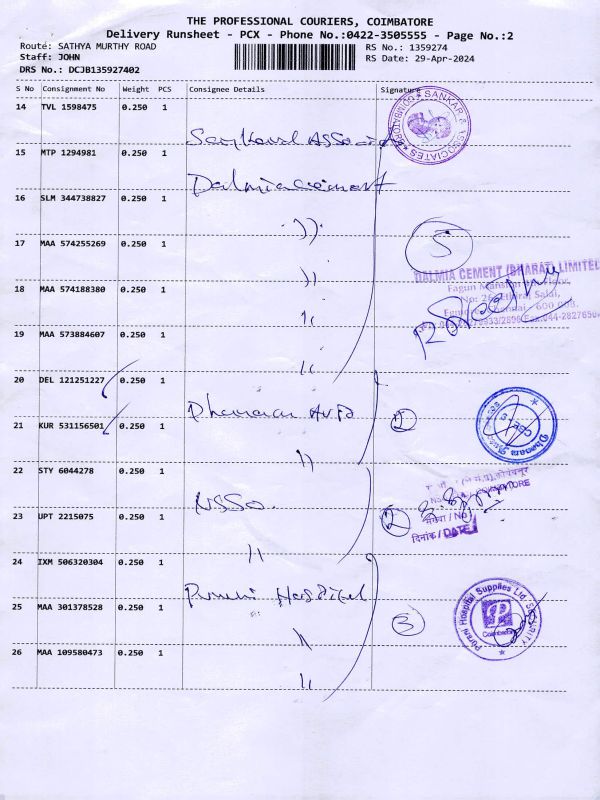 THE PROFESSIONAL COURIERS, COIMBATORE
Delivery Runsheet - PCX - Phone No.:0422-3505555 - Page No.:2
Route: SATHYA MURTHY ROAD RS No.: 1359274
Staff: JOHN RS Date: 29-Apr-2024
DRS No.: DCJB135927402
S No Consignment No Weight PCS Consignee Details Signature
14 TVL 1598475 0.250 1
SANKAR & ASSOCIATES COIMBATORE
15 MTP 1294981 0.250 1
Dalmia cement
16 SLM 344738827 0.250 1
"
17 MAA 574255269 0.250 1 5
" DALMIA CEMENT (BHARAT) LIMITED
18 MAA 574188380 0.250 1
"
19 MAA 573884607 0.250 1
"
20 DEL 121251227 0.250 1
21 KUR 531156501 0.250 1 2
"
22 STY 6044278 0.250 1
NSSO.
23 UPT 2215075 0.250 1 2 संख्या / No
" दिनांक / DATE
24 IXM 506320304 0.250 1
Hospital Supplies Ltd. SECURITY Coimbatore
25 MAA 301378528 0.250 1 3
"
26 MAA 109580473 0.250 1
"